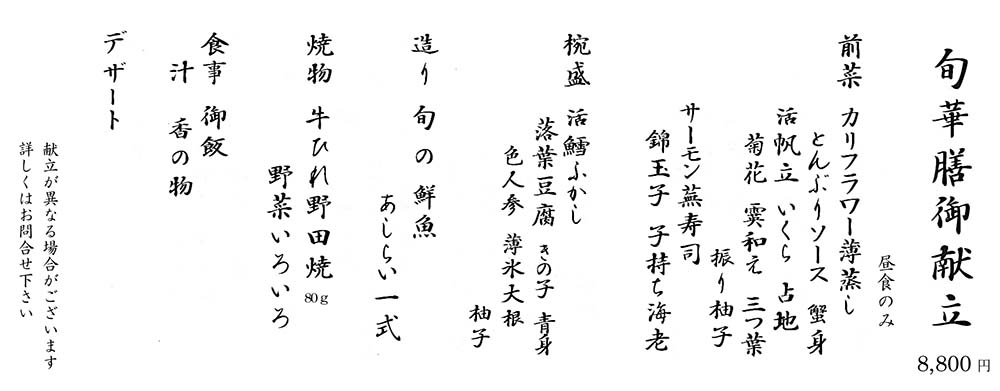 旬華膳御献立
8,800円
昼食のみ
前菜 カリフラワー薄蒸し
とんぶりソース 蟹身
活帆立 いくら 占地
菊花 霙和え 三つ葉
振り柚子
サーモン蕪寿司
錦玉子 子持ち海老
椀盛 活鱈ふかし
落葉豆腐 きの子 青身
色人参 薄氷大根
柚子
造り 旬の鮮魚
あしらい一式
焼物 牛ひれ野田焼 80g
野菜いろいろ
食事 御飯
汁 香の物
デザート
献立が異なる場合がございます
詳しくはお問合せ下さい